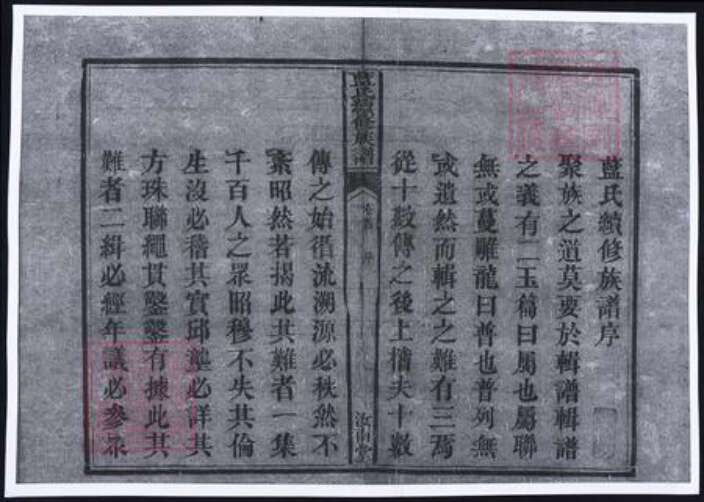 藍氏續修族譜序
聚族之道莫要於輯譜輯譜
之義有二玉篇曰屬也屬聯
無或蔓雕龍曰普也普列無
或遺然而輯之之難有三焉
從十數傳之後上擂夫十數
藍氏續修族譜
卷首 序
汝南堂
傳之始循流溯源必秩然不
紊昭然若揭此其難者一集
千百人之眾昭穆不失其倫
生沒必稽其實邱壟必詳其
方珠聯繩貫鑿鑿有據此其
難者二緝必經年議必參眾